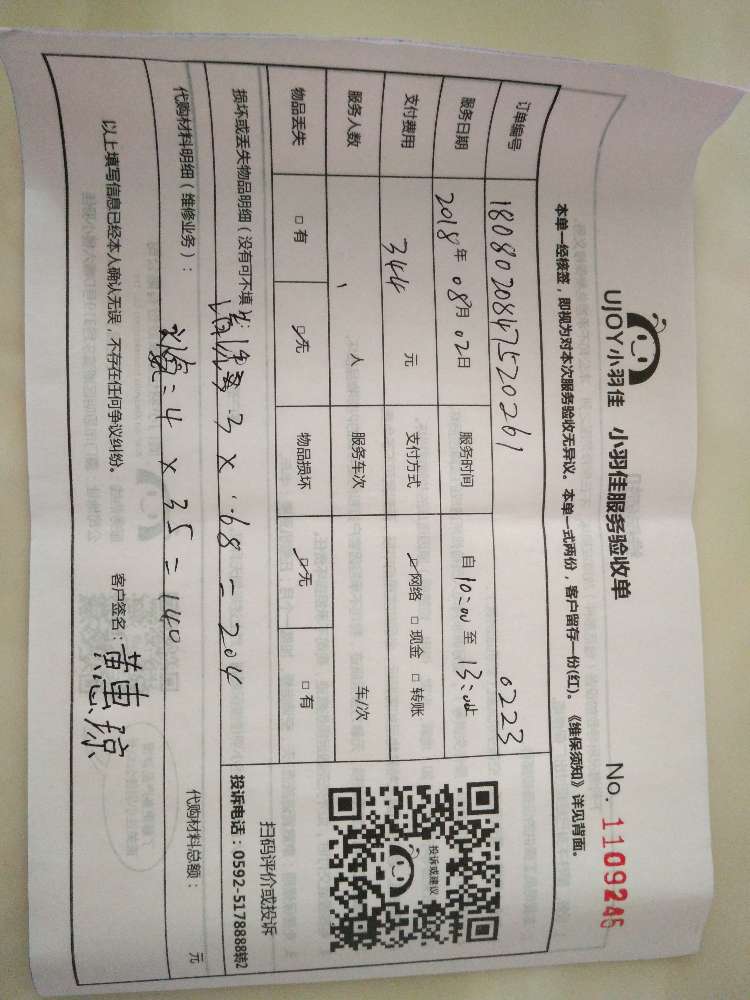 UJOY小羽佳 小羽佳服务验收单 No. 1109246
本单一经核签，即视为对本次服务验收无异议。本单一式两份，客户留存一份(红)。《维保须知》详见背面。
订单编号 180802084752026 1 0223
服务日期 2018年 08月 02日 服务时间 自 10:00 至 13:00
支付费用 344 元 支付方式 ☑网络 □现金 □转账
服务人数 1 人 服务车次 车/次
物品丢失 □有 ☑无 物品损坏 ☑无 □有
投诉或建议
扫码评价或投诉
投诉电话：0592-5178888转2
损坏或丢失物品明细（没有可不填）：
3 × 68 = 204
代购材料明细（维修业务）： 代购材料总额： 元
4 × 35 = 140
以上填写信息已经本人确认无误，不存在任何争议纠纷。 客户签名：黄惠琼